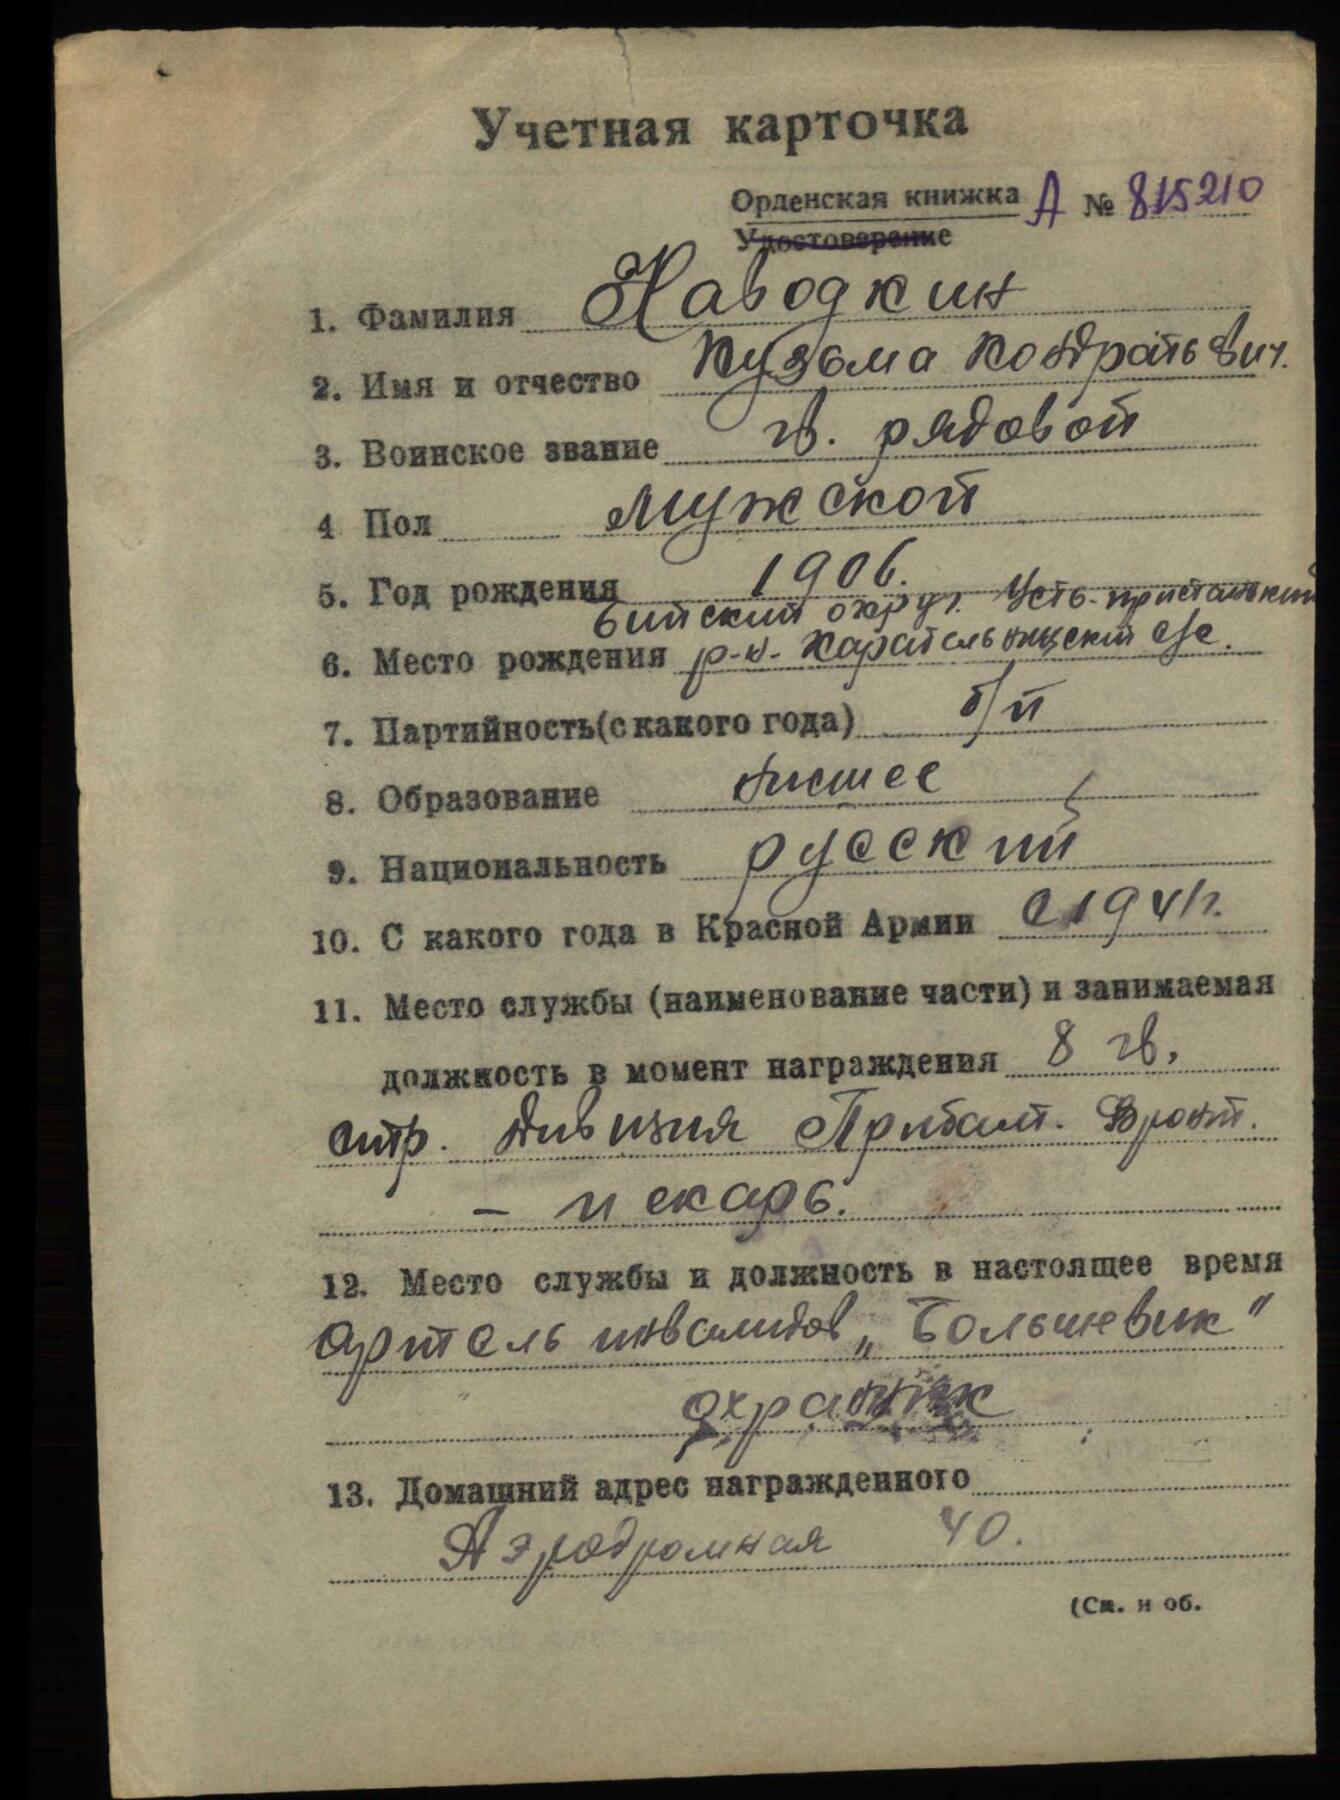 Учетная карточка
Орденская книжка А № 815210
Удостоверение
1. Фамилия Наводкин
2. Имя и отчество Кузьма Кондратьевич.
3. Воинское звание гв. рядовой
4 Пол мужской
5. Год рождения 1906.
Бийский округ. Усть-пристанский
6. Место рождения р-н. с/с.
7. Партийность (с какого года) б/п
8. Образование низшее
9. Национальность русский
10. С какого года в Красной Армии с 1941 г.
11. Место службы (наименование части) и занимаемая
должность в момент награждения 8 гв.
стр. дивизия Прибалт. Фронт.
– пекарь.
12. Место службы и должность в настоящее время
Артель инвалидов „Большевик"
охранник
13. Домашний адрес награжденного
Аэродромная 40.
(См. н об.